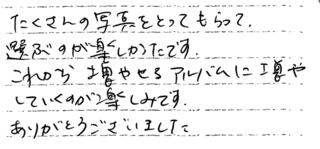 たくさんの写真をとってもらって、
選ぶのが楽しかったです。
これから増やせるアルバムに増や
していくのが楽しみです。
ありがとうございました